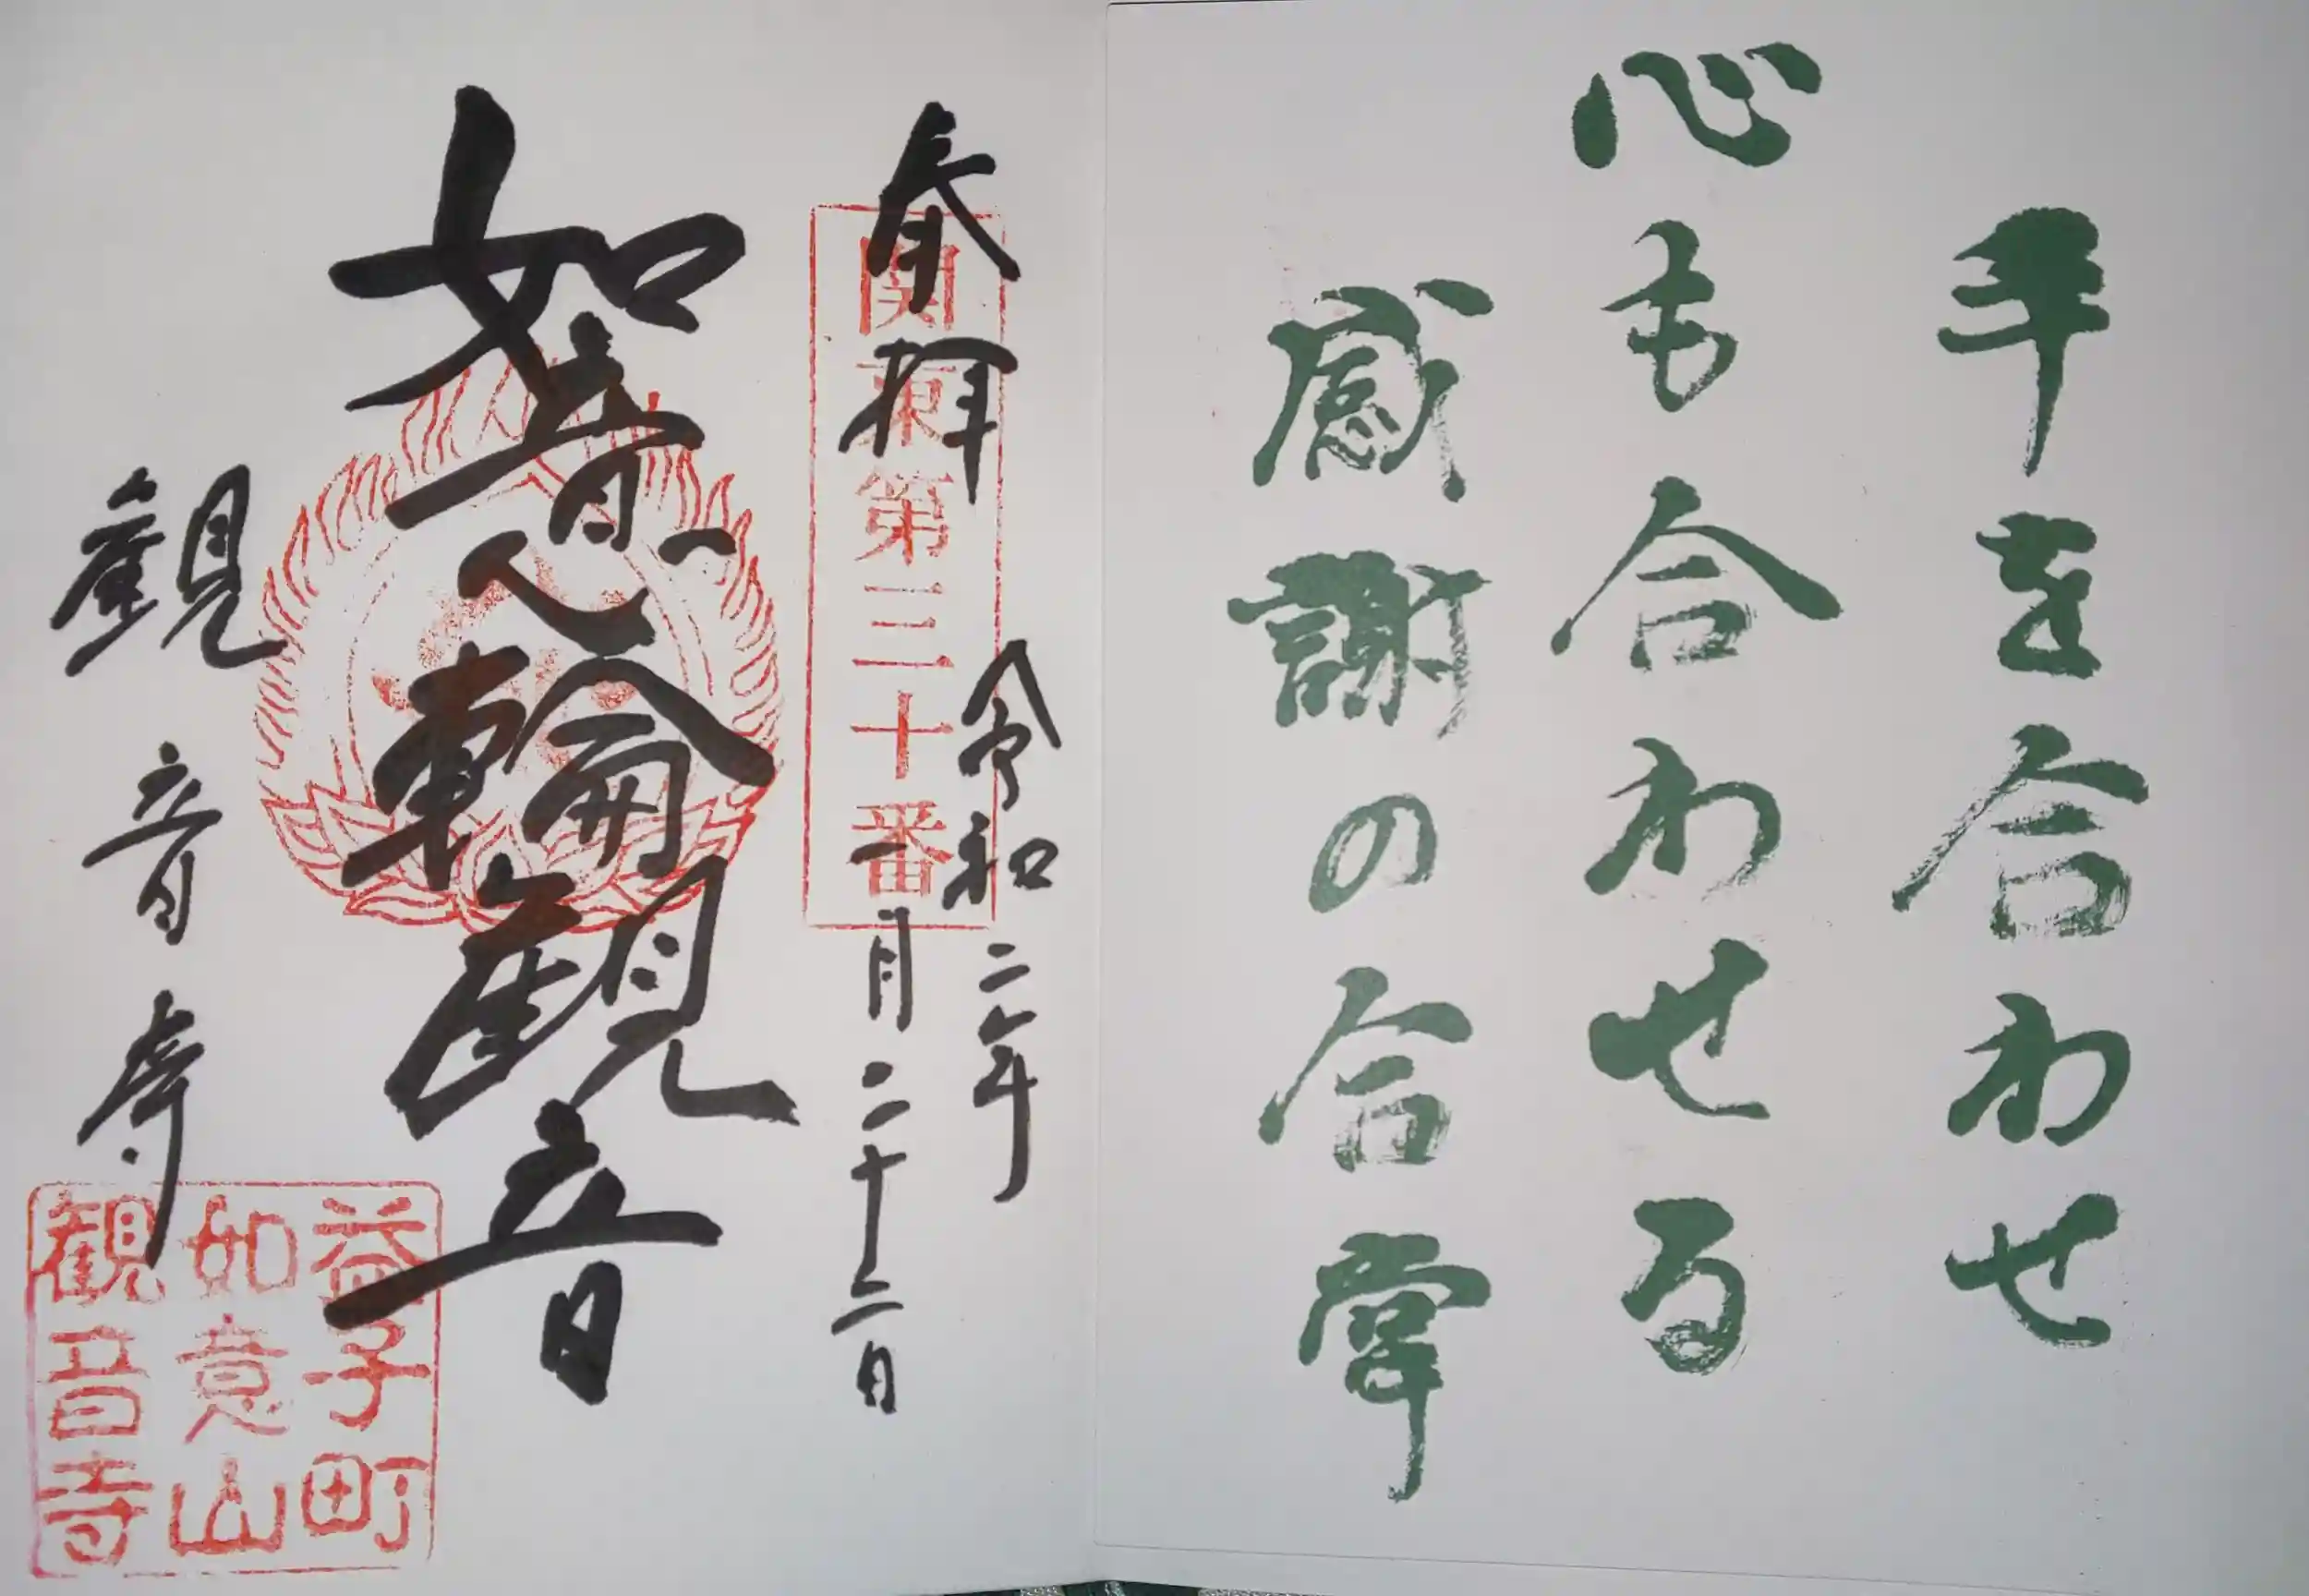 手を合わせ
心も合わせる
感謝の合掌
奉拝
関東第三十番
令和二年
二月二十二日
如意輪観音
観音寺
益子町
如意山
観音寺